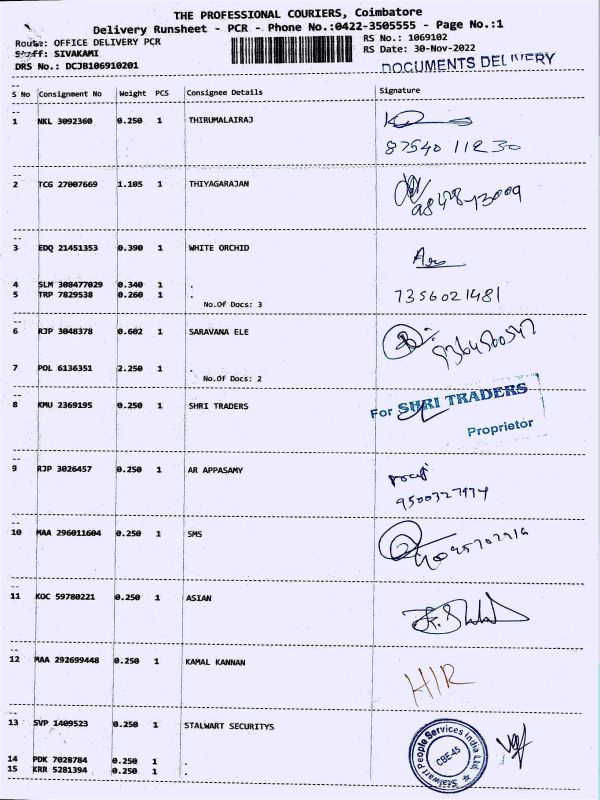 THE PROFESSIONAL COURIERS, Coimbatore
Delivery Runsheet - PCR - Phone No.:0422-3505555 - Page No.:1
Route: OFFICE DELIVERY PCR
RS No.: 1069102
Staff: SIVAKAMI
RS Date: 30-Nov-2022
DRS No.: DCJB106910201
DOCUMENTS DELIVERY
S No Consignment No Weight PCS Consignee Details Signature
1 NKL 3092360 0.250 1 THIRUMALAIRAJ
87540 11230
2 TCG 27007669 1.105 1 THIYAGARAJAN
3 EDQ 21451353 0.390 1 WHITE ORCHID
4 SLM 308477029 0.340 1 .
5 TRP 7829538 0.260 1 .
7356021481
No.Of Docs: 3
6 RJP 3048378 0.602 1 SARAVANA ELE
9364500547
7 POL 6136351 2.250 1 .
No.Of Docs: 2
8 KMU 2369195 0.250 1 SHRI TRADERS
For SHRI TRADERS
Proprietor
9 RJP 3026457 0.250 1 AR APPASAMY
9500327974
10 MAA 296011604 0.250 1 SMS
11 KOC 59780221 0.250 1 ASIAN
12 MAA 292699448 0.250 1 KAMAL KANNAN
H/R
13 SVP 1409523 0.250 1 STALWART SECURITYS
Stalwart People Services India Ltd.
CBE-45
14 PDK 7028784 0.250 1 .
15 KRR 5281394 0.250 1 .